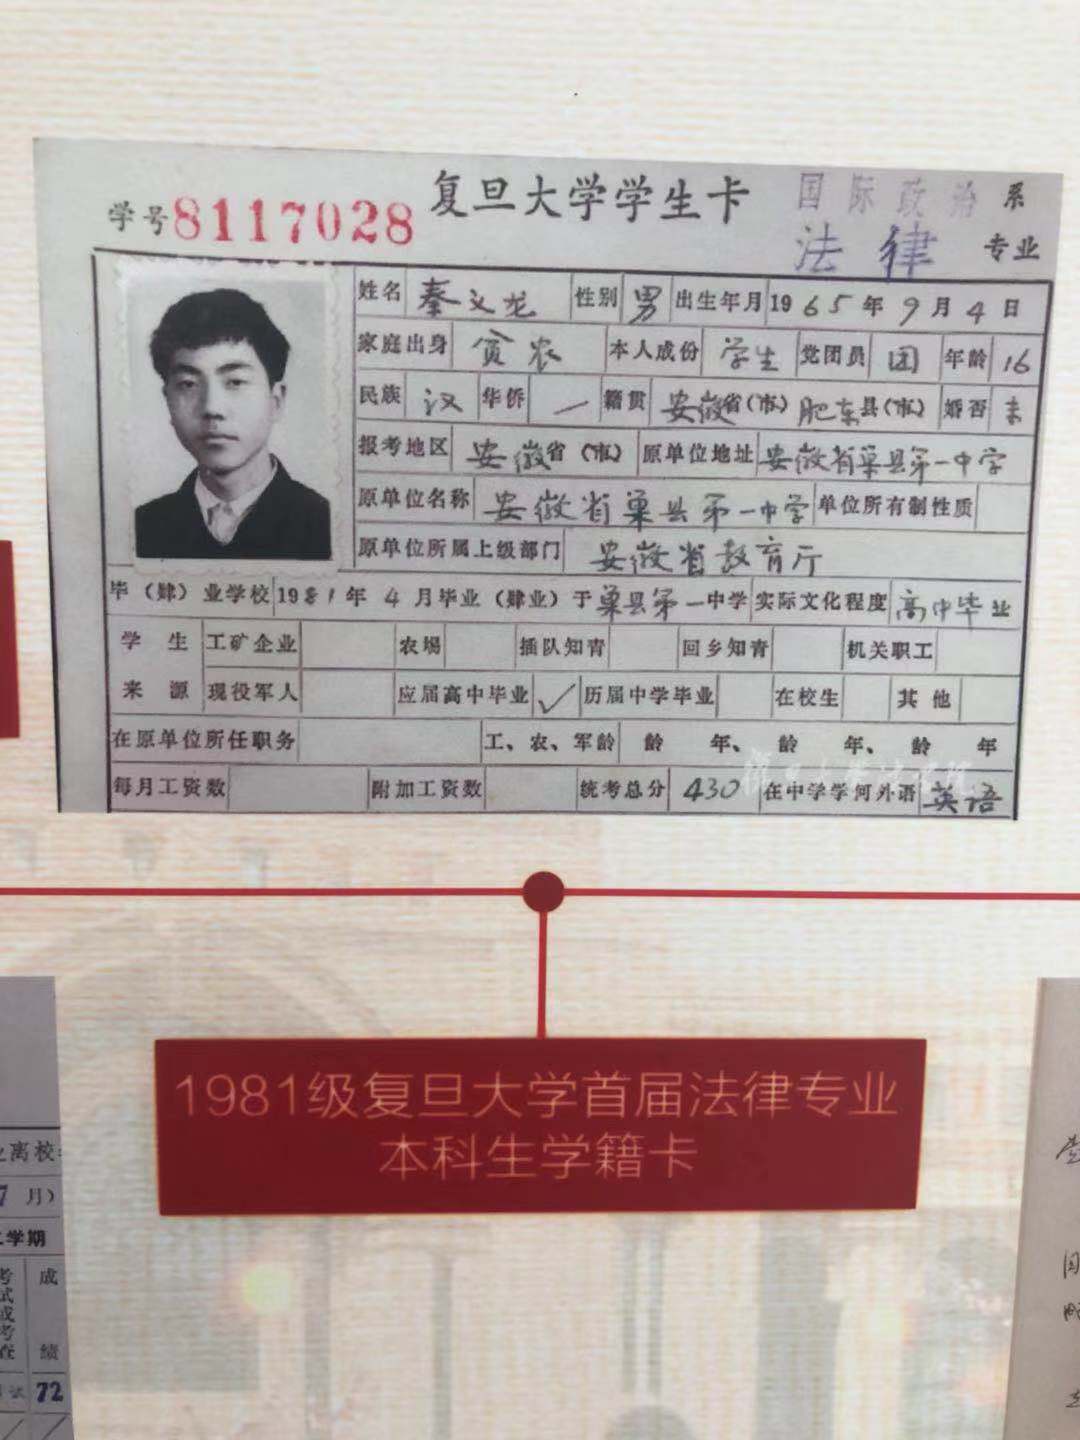 学号8117028 复旦大学学生卡 国际政治系
法律专业
姓名 秦文龙 性别 男 出生年月 1965年9月4日
家庭出身 贫农 本人成份 学生 党团员 团 年龄 16
民族 汉 华侨 一 籍贯 安徽省(市) 肥东县(市) 婚否 未
报考地区 安徽省(市) 原单位地址 安徽省巢县第一中学
原单位名称 安徽省巢县第一中学 单位所有制性质
原单位所属上级部门 安徽省教育厅
毕(肄)业学校 1981年4月毕业(肄业)于巢县第一中学 实际文化程度 高中毕业
学生 工矿企业 农场 插队知青 回乡知青 机关职工
来源 现役军人 应届高中毕业 ✓ 历届中学毕业 在校生 其他
在原单位所任职务 工、农、军龄 龄 年、 龄 年、 龄 年
每月工资数 附加工资数 统考总分 430 在中学学何外语 英语
1981级复旦大学首届法律专业
本科生学籍卡
业离校
7月)
学期
考试或考查 成绩
试 72